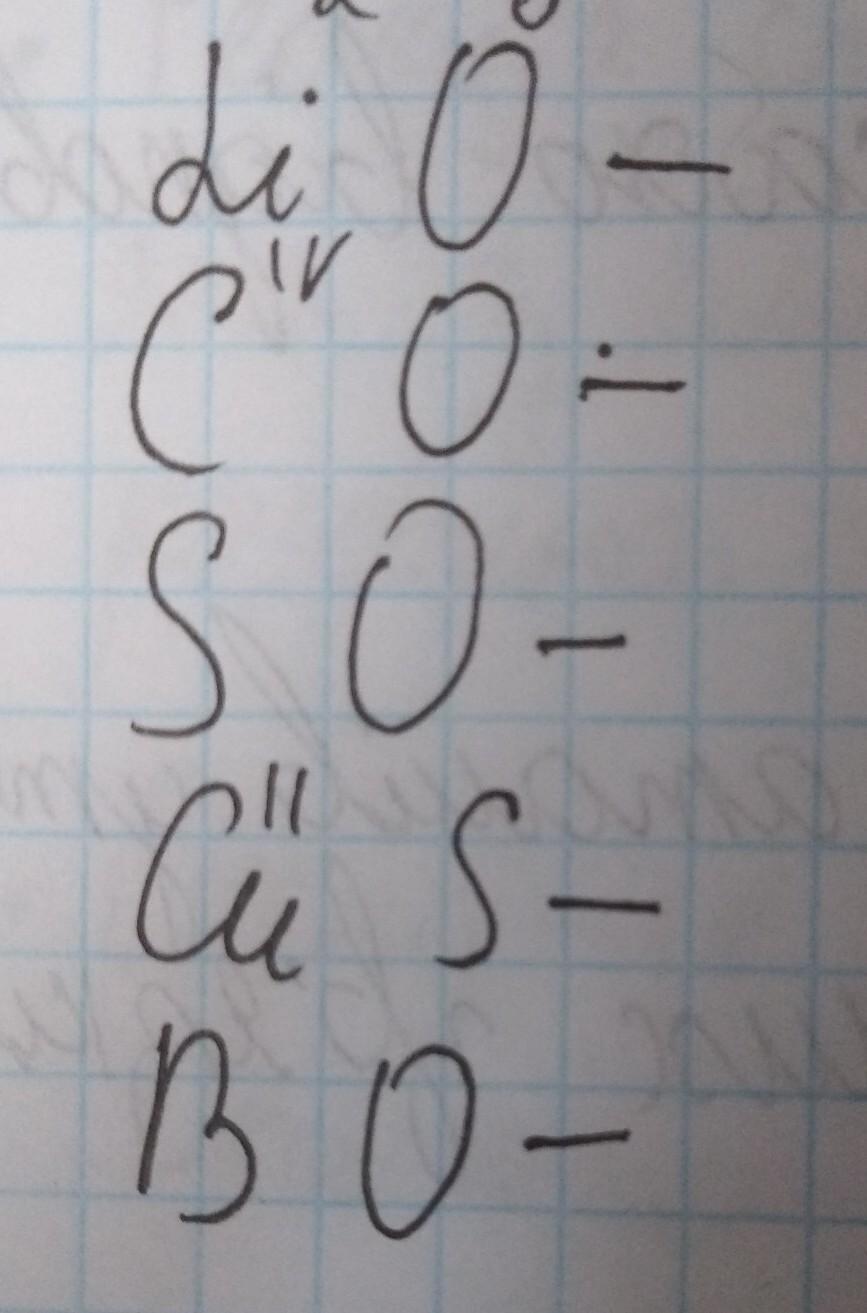 Li O —
C^IV O —
S O —
Cu^II S —
B O —